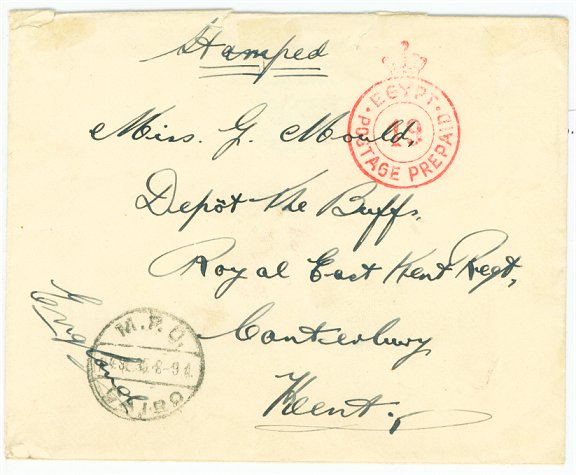 Stamped
EGYPT
POSTAGE PREPAID
19
Miss. G. Mould,
Depôt the Buffs,
Royal East Kent Regt,
Canterbury
Kent.
England
M.P.O.
CAIRO